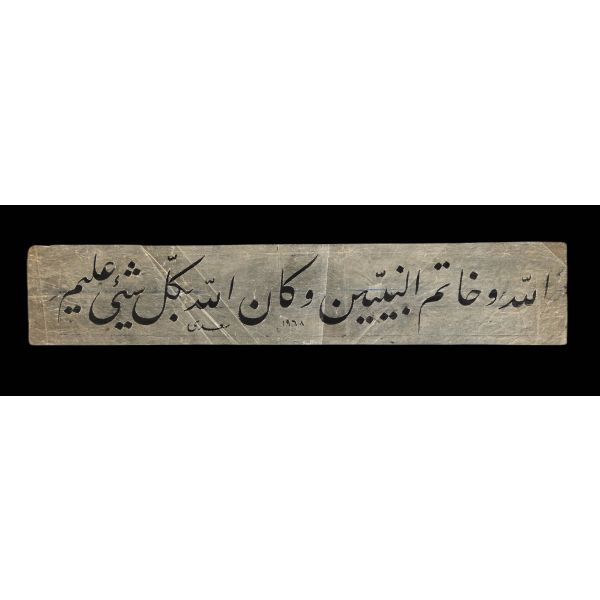 الله وخاتم النبيّين وكان الله بكلّ شيئ عليم
١٩٦٨
سعدي